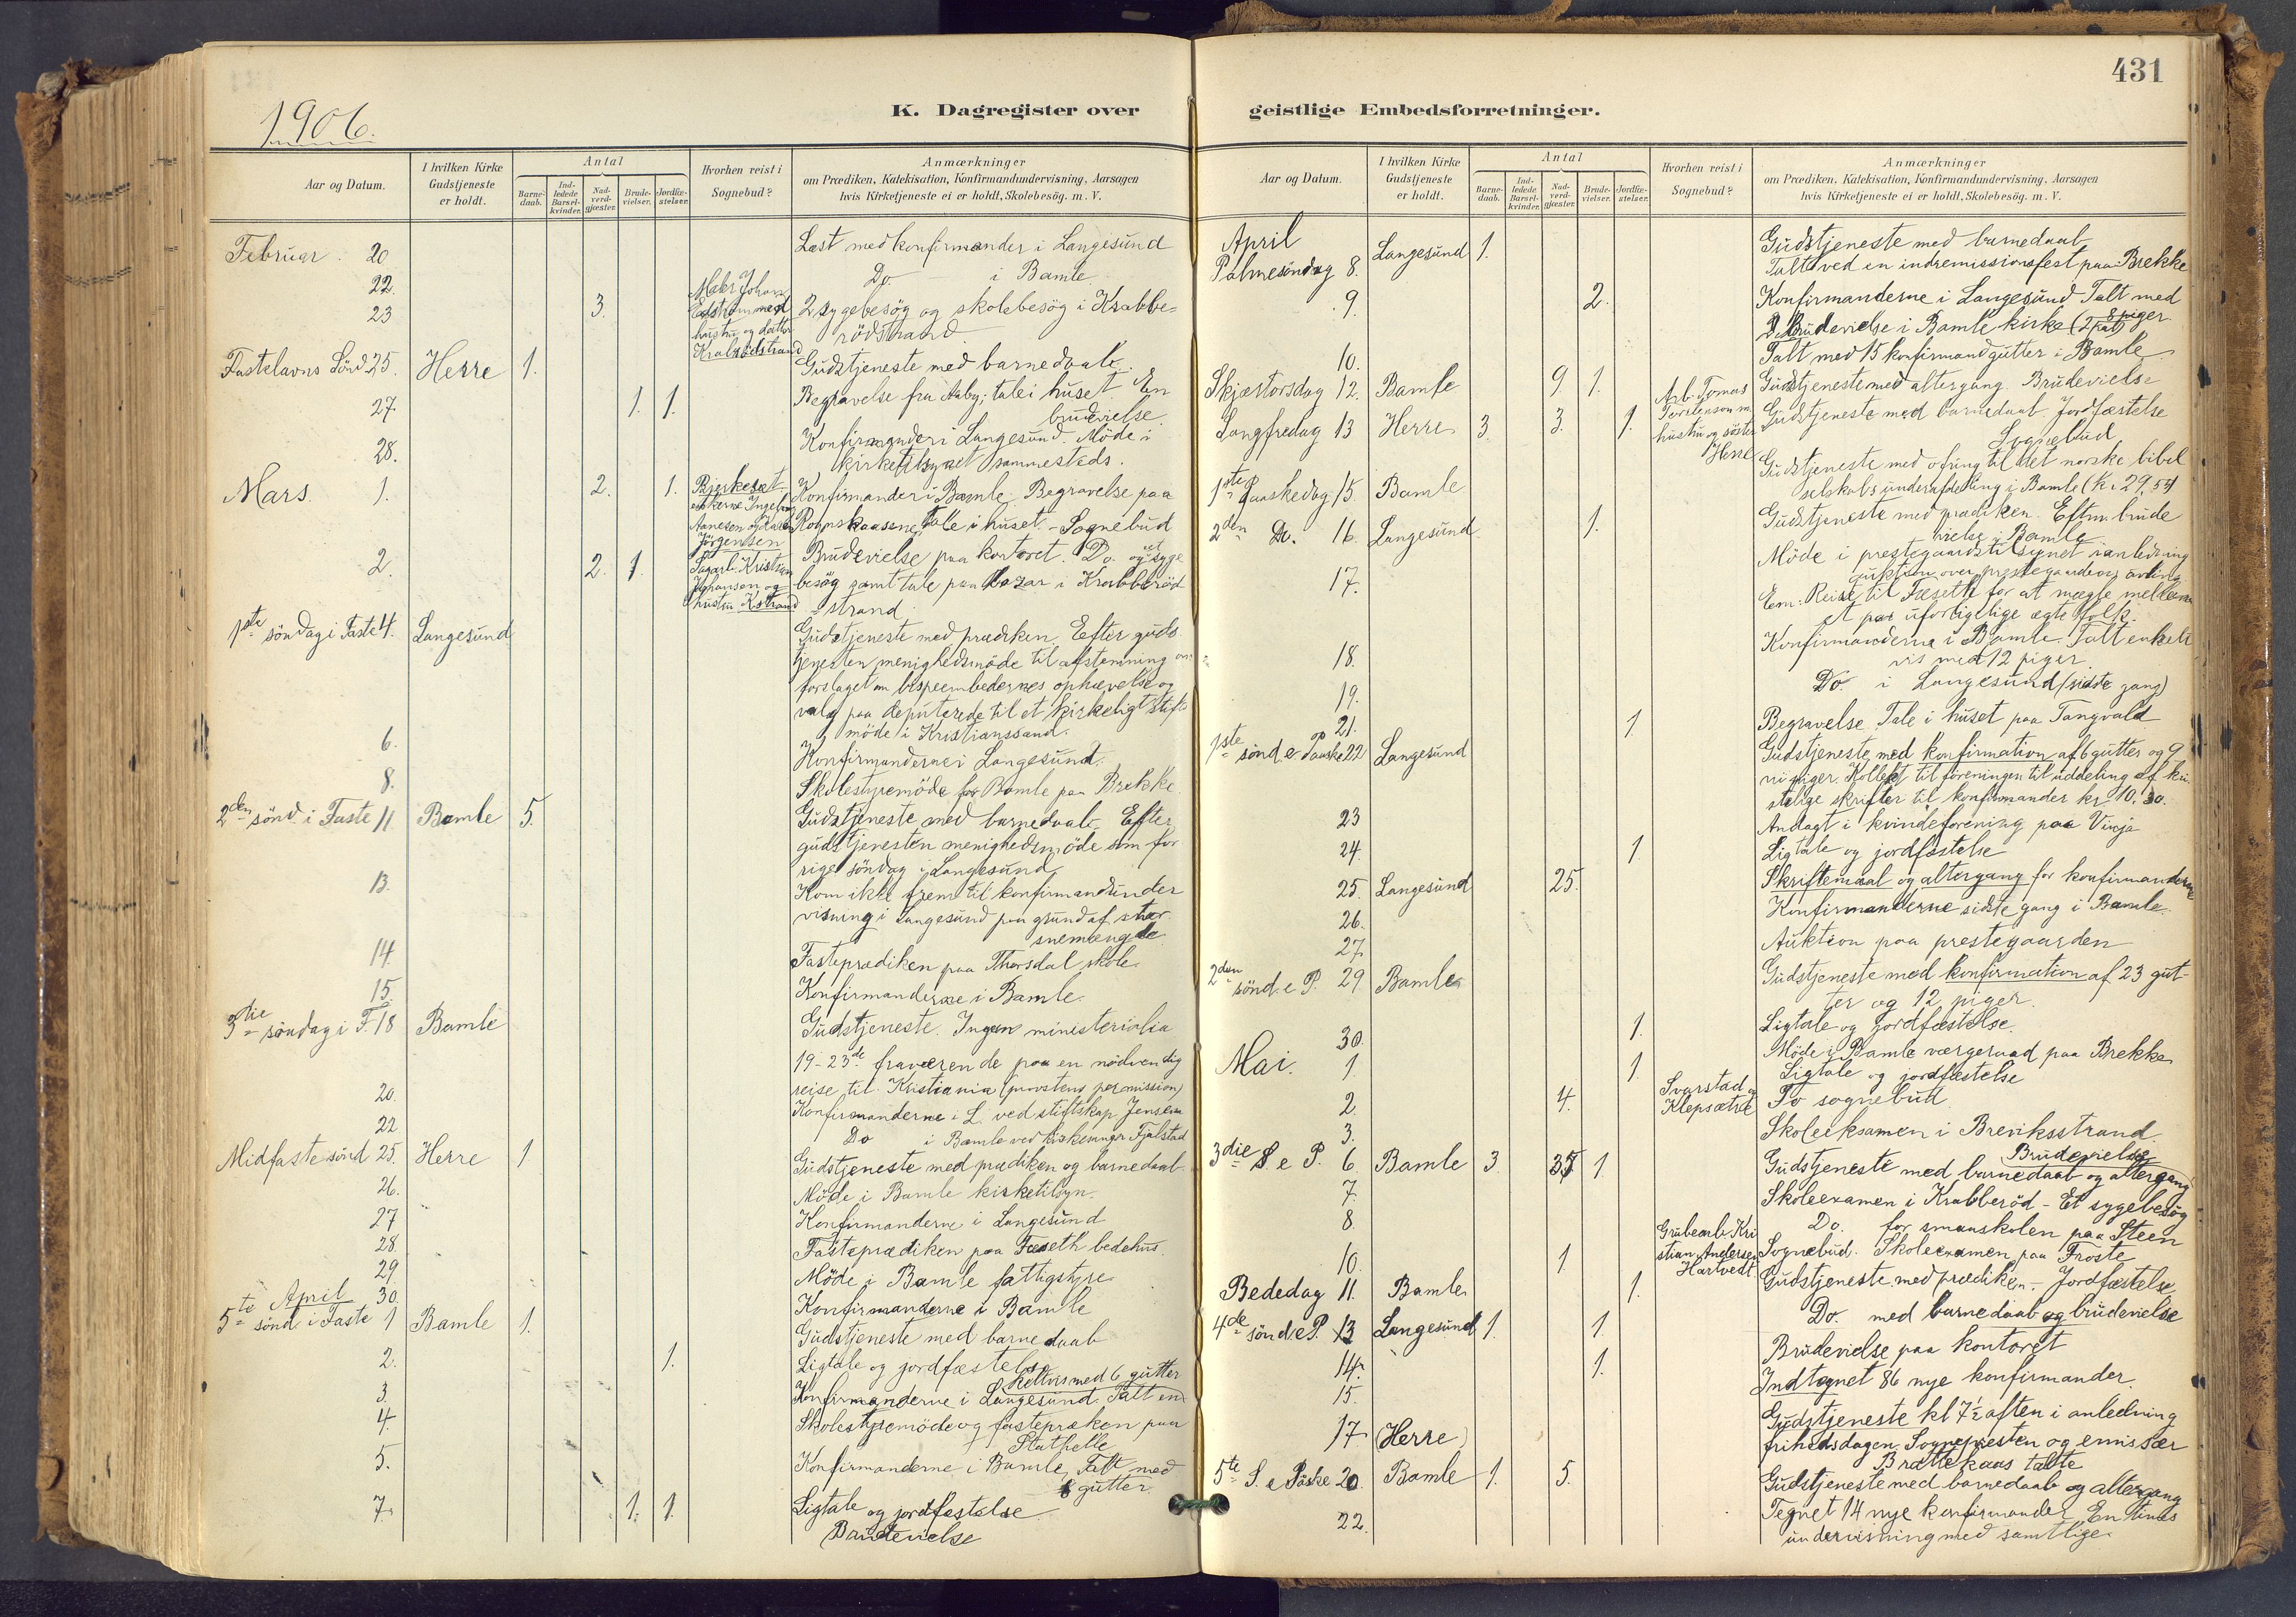 431
K. Dagregister over geistlige Embedsforretninger.
1906.
Aar og Datum.
I hvilken Kirke Gudstjeneste er holdt.
Antal
Barnedaab.
Indledede Barselkvinder.
Nadverdgjæster.
Brudevielser.
Jordfæstelser.
Hvorhen reist i Sognebud?
Anmærkninger
om Prædiken, Katekisation, Konfirmandundervisning, Aarsagen
hvis Kirketjeneste ei er holdt, Skolebesög. m. V.
Februar 20 Læst med konfirmander i Langesund
22. Do. i Bamle
23 3. Johan
Edstrøm med
hustru og datter
Krabrödstrand
2 sygebesög og skolebesög i Krabbe-
rödstrand
Fastelavns Sönd 25. Herre 1. Gudstjeneste med barnedaab.
27 1. 1. Begravelse fra Aaby; tale i huset. En
brudvielse.
28. Konfirmander i Langesund. Möde i
kirketilsynet sammesteds.
Mars. 1. 2. 1. Bjerkeset
Jörgensen
Konfirmander i Bamle. Begravelse paa
Tale i huset. - Sognebud
2. 2. 1. Kristian
Johansen og
hustru K.strand
Brudevielse paa kontoret. Do. og et syge
besög samt tale paa bazar i Krabberöd
= strand
1ste söndag i Faste 4. Langesund Gudstjeneste med prædiken. Efter guds
tjenesten menighedsmöde til afstemning om
forslaget om bispeembedernes ophævelse og
valg paa deputerede til et kirkeligt stifts
möde i Kristianssand.
6. Konfirmanderne i Langesund.
8. Skolestyremöde for Bamle paa Brekke.
2den sönd. i Faste 11 Bamle 5. Gudstjeneste med barnedaab. Efter
gudstjenesten menighedsmöde som for
rige söndag i Langesund
13. Kom ikke frem til konfirmandunder
visning i Langesund paa grund af stor
snemængde
14. Fasteprædiken paa Thorsdal skole.
15. Konfirmanderne i Bamle.
3die söndag i F. 18 Bamle Gudstjeneste. Ingen ministerialia
19-23de fraværende paa en nödvendig
reise til Kristiania (provstens permission)
20. Konfirmanderne i L. ved stiftskap. Jensen
22 Do i Bamle ved kirkesanger Fjalstad
Midfaste sönd 25. Herre 1 Gudstjeneste med prædiken og barnedaab
26. Möde i Bamle kirketilsyn.
27 Konfirmanderne i Langesund
28. Fasteprædiken paa Fæseth bedehus.
29 Möde i Bamle fattigstyre
30. Konfirmanderne i Bamle
April
5te sönd i Faste 1 Bamle 1. Gudstjeneste med barnedaab
2. 1. Ligtale og jordfæstelse
3. Konfirmanderne i Langesund. Talt en
keltvis med 6 gutter
4. Skolestyremöde og fastepræken paa
Stathelle
5. Konfirmanderne i Bamle, Talt med
8 gutter.
7. 1. 1. Ligtale og jordfæstelse
Brudevielse
April
Palmesöndag 8. Langesund 1. Gudstjeneste med barnedaab
Talt ved en indremissionsfest paa Brekke
9. 2. Konfirmanderne i Langesund Talt med
8 piger
Brudevielse i Bamle kirke (2 par)
10. Talt med 15 konfirmandgutter i Bamle
Skjærtorsdag 12. Bamle 9 1. Gudstjeneste med altergang. Brudevielse
Langfredag 13 Herre 3. 3. 1. Arb. Tomas
hustru og söster
Herre
Gudstjeneste med barnedaab. Jordfæstelse
Sognebud
1ste Paaskedag 15 Bamle Gudstjeneste med ofring til det norske bibel
selskabs underafdeling i Bamle (kr 29,54)
2den Do. 16. Langesund 1. Gudstjeneste med prædiken. Eftm. brude
vielse i Bamle
17. Möde i prestegaardstilsynet i anledning
auktion over prestegaardens avling
Eem: Reise til Fæseth for at mægle mellem
et par uforligelige ægtefolk.
18. Konfirmanderne i Bamle. Talt enkelt
vis med 12 piger
19. Do. i Langesund (sidste gang)
21. 1 Begravelse. Tale i huset paa Tangvald
1ste sönd. e Paaske 22 Langesund Gudstjeneste med konfirmation af 6 gutter og 9
ni piger. Kollekt til foreningen til uddeling af kri
stelige skrifter til konfirmander kr 10.30.
23 Andagt i kvindeforening paa Vinja
24. 1. Ligtale og jordfæstelse
25. Langesund 25. Skriftemaal og altergang for konfirmanderne
26. Konfirmanderne sidste gang i Bamle.
27 Auktion paa prestegaarden
2den sönd. e P. 29 Bamle Gudstjeneste med konfirmation af 23 gut-
ter og 12 piger.
30. 1. Ligtale og jordfæstelse.
Möde i Bamle værgeraad paa Brekke
Mai. 1. 1. Ligtale og jordfæstelse
2. 4. Svarstad og
Klepsætre
To sognebud
3. Skoleeksamen i Breviksstrand.
3die S. e P. 6. Bamle 3 35 1 Gudstjeneste med barnedaab og altergang
Brudevielse
7. Skoleexamen i Krabberöd - Et sygebesög
8. Do. for smaaskolen paa Steen
10. 1 Grubearb. Kri
stian Andersen
Hartvedt
Sognebud. Skoleexamen paa Froste
Bededag 11. Bamle 1. Gudstjeneste med prædiken. - Jordfæstelse
4de sönd e P. 13 Langesund 1. 1. Do. med barnedaab og brudevielse
14. 1. Brudevielse paa kontoret
15. Indtegnet 86 nye konfirmander
17 (Herre) Gudstjeneste kl 7½ aften i anledning
frihedsdagen. Sognepresten og emissær
Brattekaas talte
5te S. e Påske 20 Bamle 1. 5. Gudstjeneste med barnedaab og altergang
22. Tegnet 14 nye konfirmander. En times
undervisning med samtlige.